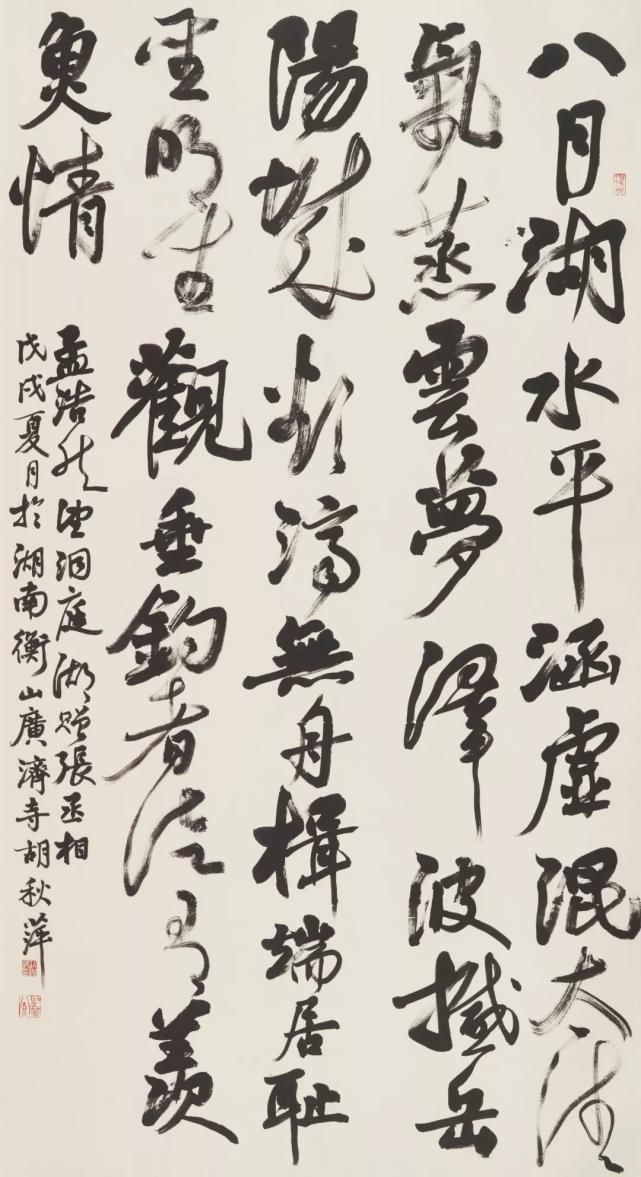 八月湖水平涵虚混太清
氣蒸雲夢澤波撼岳
陽城欲濟無舟楫端居耻
聖明坐觀垂釣者徒有羡
魚情
孟浩然望洞庭湖贈張丞相
戊戌夏月於湖南衡山廣濟寺胡秋萍